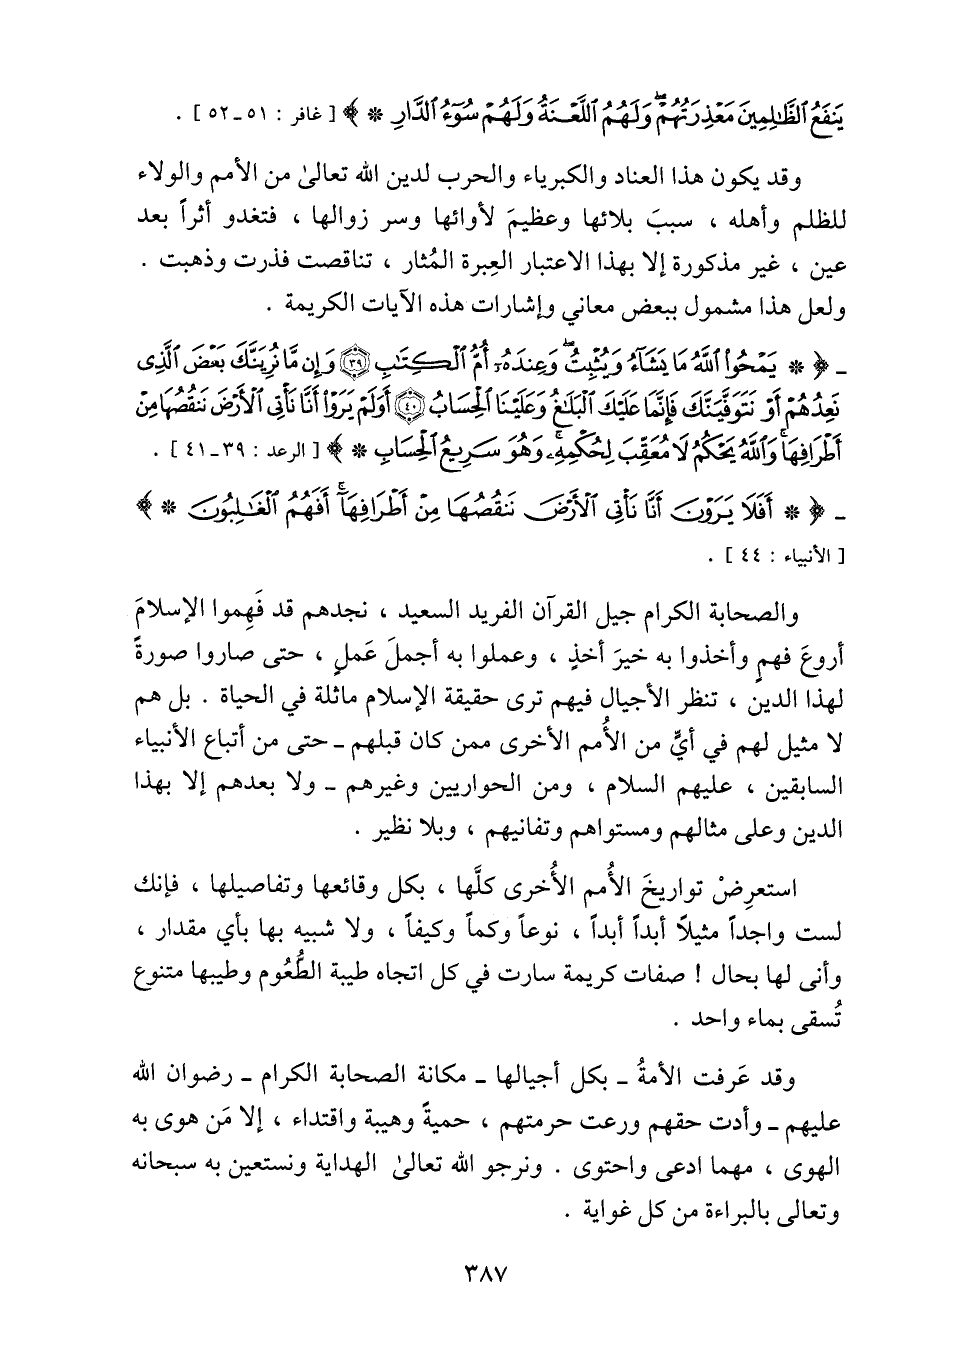 يَنفَعُ ٱلظَّٰلِمِينَ مَعۡذِرَتُهُمۡۖ وَلَهُمُ ٱللَّعۡنَةُ وَلَهُمۡ سُوٓءُ ٱلدَّارِ * ﴾ [ غافر : ٥١ ـ ٥٢ ] .
وقد يكون هذا العناد والكبرياء والحرب لدين الله تعالىٰ من الأمم والولاء
للظلم وأهله ، سببَ بلائها وعظيمَ لأوائها وسر زوالها ، فتغدو أثراً بعد
عين ، غير مذكورة إلا بهذا الاعتبار العِبرة المُثار ، تناقصت فذرت وذهبت .
ولعل هذا مشمول ببعض معاني وإشارات هذه الآيات الكريمة .
ـ ﴿ * يَمۡحُواْ ٱللَّهُ مَا يَشَآءُ وَيُثۡبِتُۖ وَعِندَهُۥٓ أُمُّ ٱلۡكِتَٰبِ ۝٣٩ وَإِن مَّا نُرِيَنَّكَ بَعۡضَ ٱلَّذِى
نَعِدُهُمۡ أَوۡ نَتَوَفَّيَنَّكَ فَإِنَّمَا عَلَيۡكَ ٱلۡبَلَٰغُ وَعَلَيۡنَا ٱلۡحِسَابُ ۝٤٠ أَوَلَمۡ يَرَوۡاْ أَنَّا نَأۡتِى ٱلۡأَرۡضَ نَنقُصُهَا مِنۡ
أَطۡرَافِهَاۚ وَٱللَّهُ يَحۡكُمُ لَا مُعَقِّبَ لِحُكۡمِهِۦۚ وَهُوَ سَرِيعُ ٱلۡحِسَابِ * ﴾ [ الرعد : ٣٩ ـ ٤١ ] .
ـ ﴿ * أَفَلَا يَرَوۡنَ أَنَّا نَأۡتِى ٱلۡأَرۡضَ نَنقُصُهَا مِنۡ أَطۡرَافِهَآۚ أَفَهُمُ ٱلۡغَٰلِبُونَ * ﴾
[ الأنبياء : ٤٤ ] .
والصحابة الكرام جيل القرآن الفريد السعيد ، نجدهم قد فَهِموا الإسلامَ
أروعَ فهمٍ وأخذوا به خيرَ أخذٍ ، وعملوا به أجملَ عَملٍ ، حتى صاروا صورةً
لهذا الدين ، تنظر الأجيال فيهم ترى حقيقة الإسلام ماثلة في الحياة . بل هم
لا مثيل لهم في أيٍّ من الأُمم الأخرى ممن كان قبلهم ـ حتى من أتباع الأنبياء
السابقين ، عليهم السلام ، ومن الحواريين وغيرهم ـ ولا بعدهم إلا بهذا
الدين وعلى مثالهم ومستواهم وتفانيهم ، وبلا نظير .
استعرِضْ تواريخَ الأُمم الأُخرى كلَّها ، بكل وقائعها وتفاصيلها ، فإنك
لست واجداً مثيلاً أبداً أبداً ، نوعاً وكماً وكيفاً ، ولا شبيه بها بأي مقدار ،
وأنى لها بحال ! صفات كريمة سارت في كل اتجاه طيبة الطُّعُوم وطيبها متنوع
تُسقى بماء واحد .
وقد عَرفت الأمةُ ـ بكل أجيالها ـ مكانة الصحابة الكرام ـ رضوان الله
عليهم ـ وأدت حقهم ورعت حرمتهم ، حميةً وهيبة واقتداء ، إلا مَن هوى به
الهوى ، مهما ادعى واحتوى . ونرجو الله تعالىٰ الهداية ونستعين به سبحانه
وتعالى بالبراءة من كل غواية .
٣٨٧